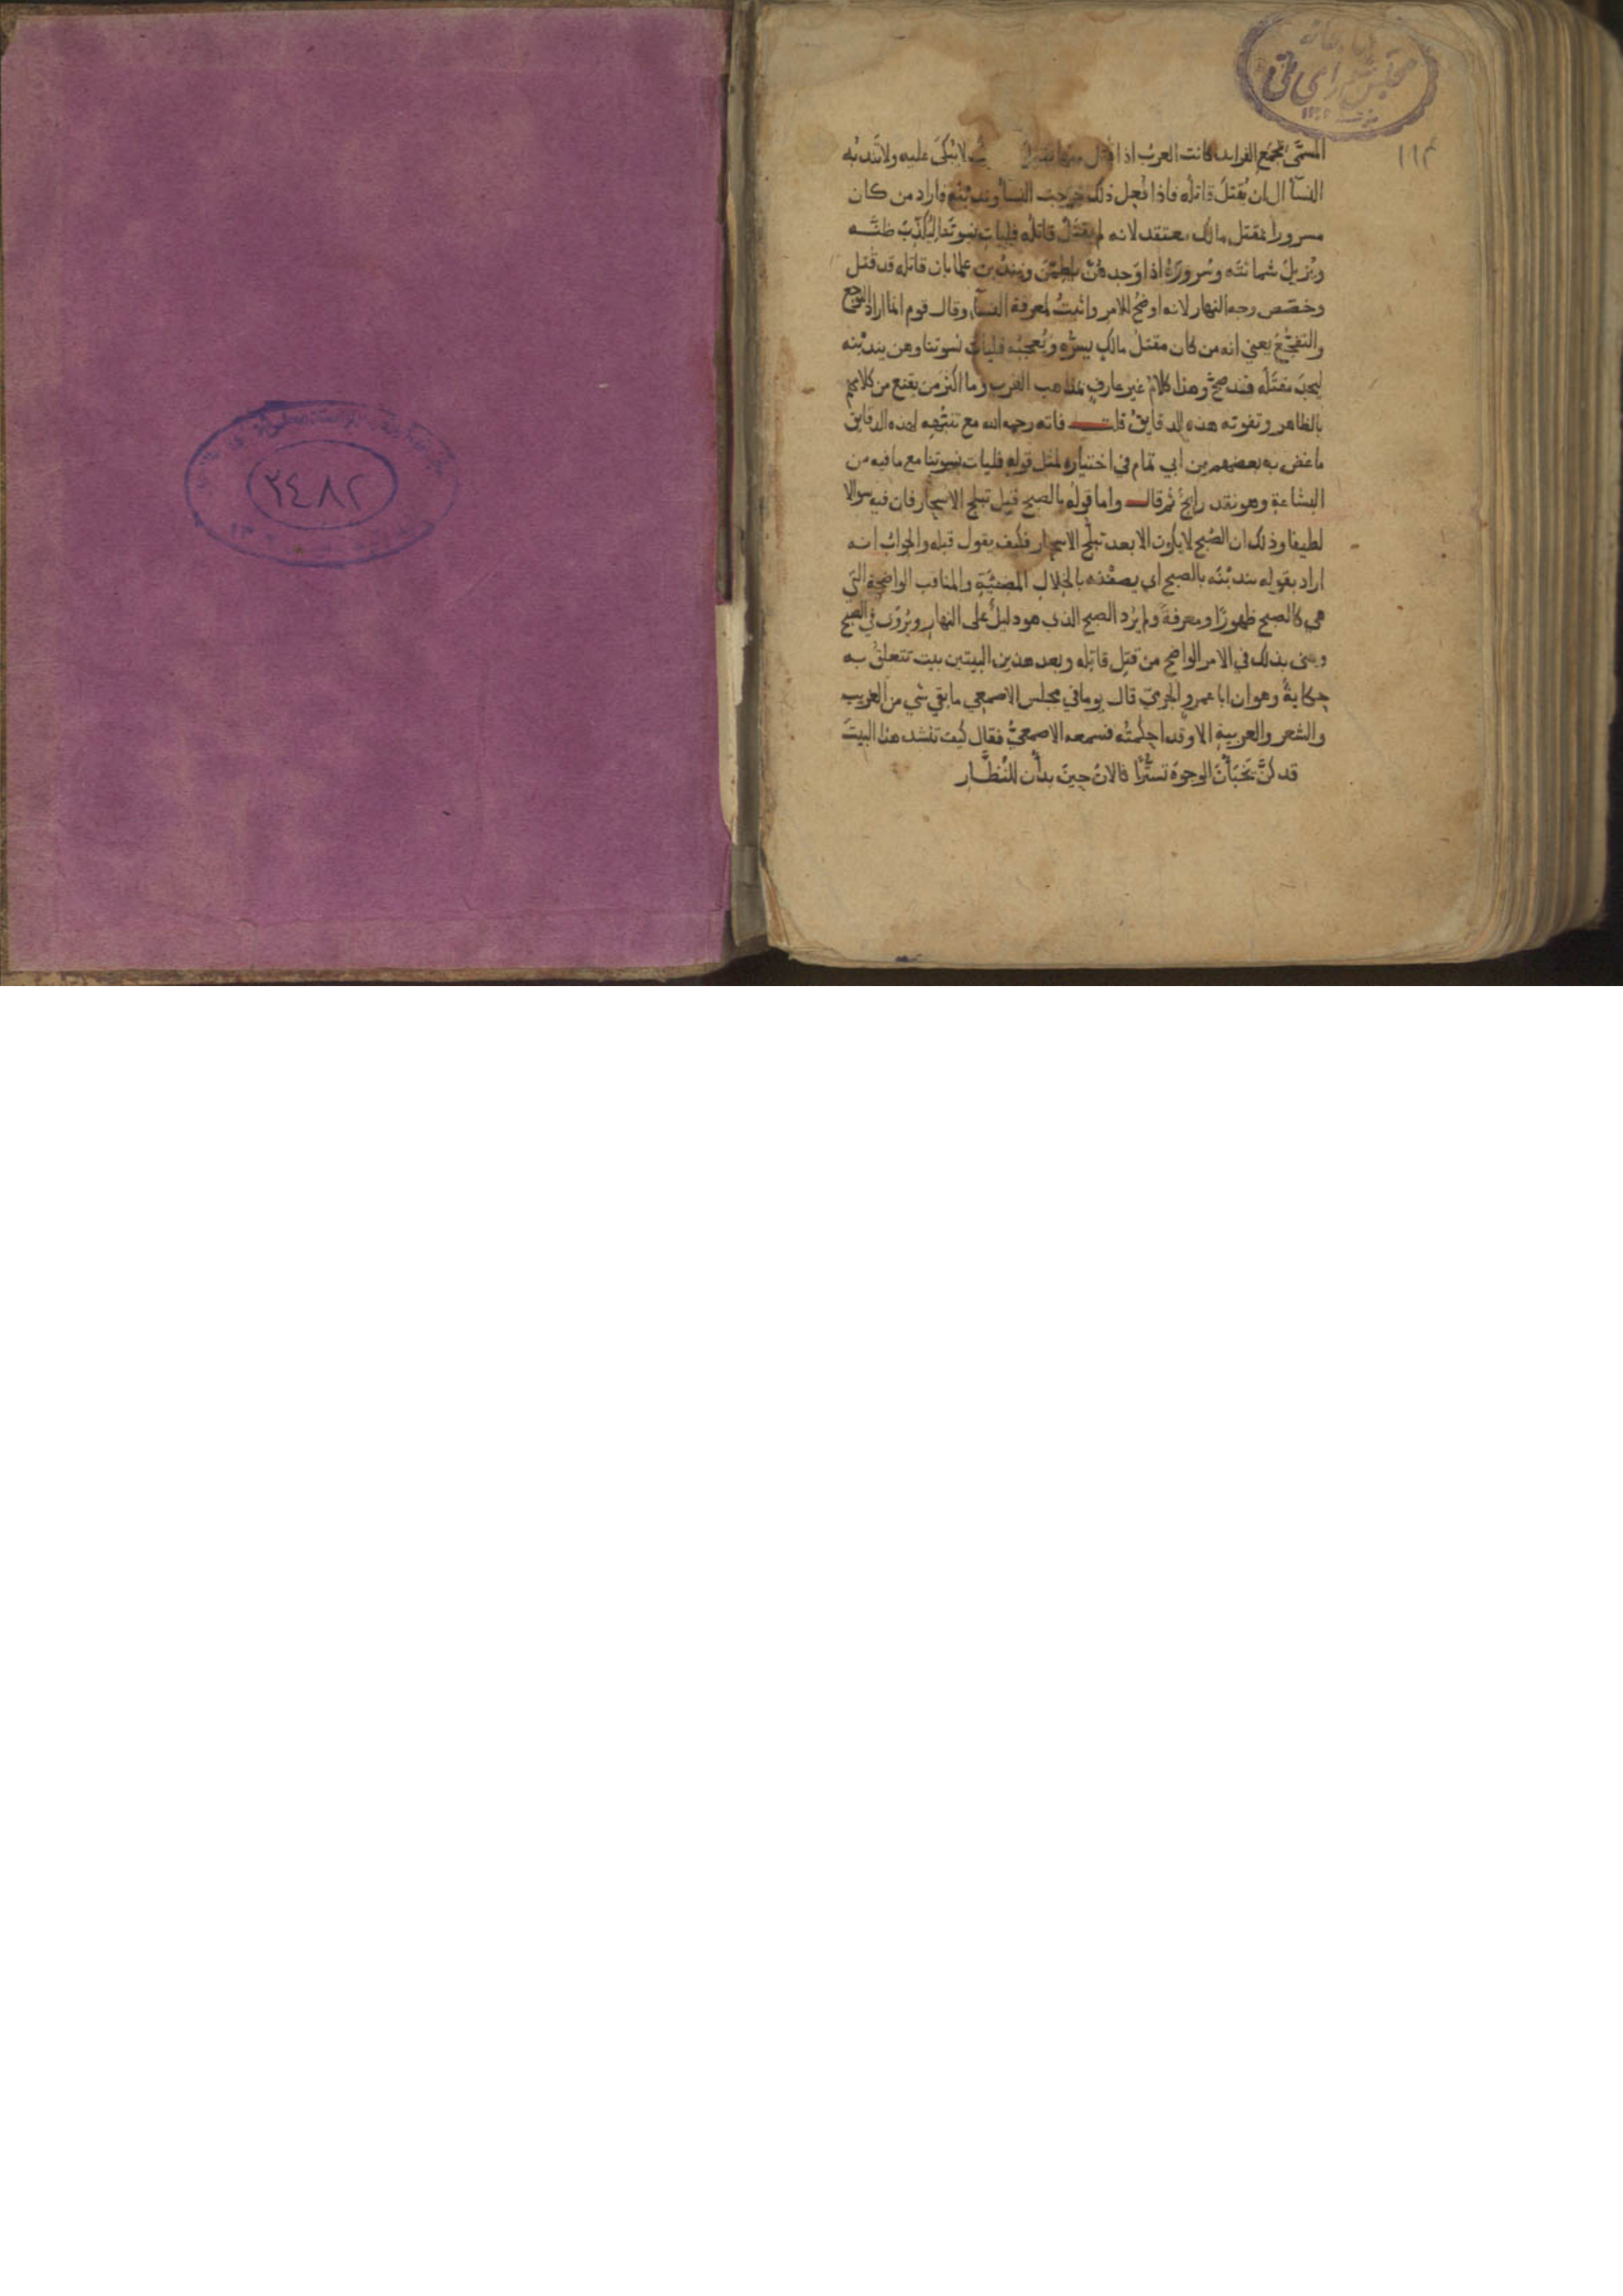 المسمّى بمجمع الفرايد كانت العرب اذا قتل منها قتيل لا يُبكى عليه ولا تندبه
النسآ الى ان يُقتل قاتله فاذا فُعل ذلك خرجت النسآ وندبنه فاراد من كان
مسرورا بمقتل مالك معتقد لانه لم يقتل قاتله فليات نسوتنا ليكذّب ظنّه
ويُزيل شماتته وسُروره اذا وجدهنّ يلطمن ويندبن علما بان قاتله قد قُتل
وخصّص وجه النهار لانه اوضح للامر واثبت لمعرفة النسآ وقال قوم انما اراد التوجع
والتفجّع يعني انه من كان مقتل مالك يسرّه ويُعجبه فليات نسوتنا وهن يندبنه
مقتله فقد صحّ وهذا كلام غير عارف بمذاهب العرب وما اكثر من يقنع من كلامهم
بالظاهر وتفوته هذه الدقايق قلت فاته رحمه الله مع تنبّهه لهذه الدقايق
ما غض به بعضهم من ابي تمام في اختياره لمثل قوله فليات نسوتنا مع ما فيه من
البشاعة وهو نقد رايج ثم قال واما قوله بالصبح قبل تبلج الاسحار فان فيه سوالا
لطيفا وذلك ان الصُبح لا يكون الا بعد تبلّج الاسحار فكيف يقول قبله والجواب انه
اراد بقوله يندبنه بالصبح اي يصفنه بالخلال المضيّة والمناقب الواضحة التي
هي كالصبح ظهورًا ومعرفةً ولم يُرد الصبح الذي هو دليلٌ على النهار ويُروى في الصبح
ويعنى بذلك في الامر الواضح من قتل قاتله وبعد هذين البيتين بيت تتعلق به
حكاية وهو ان ابا عمرو الجرمي قال يوما في مجلس الاصمعي ما بقي شي من الغريب
والشعر والعربية الا وقد احكمته فسمعه الاصمعيّ فقال كيف تنشد هذا البيت
قد كنّ يخبأن الوجوه تستّرًا فالان حين بدأن للنُظّار
١١٢
مجلس شورای ملی
٢٤٨٢